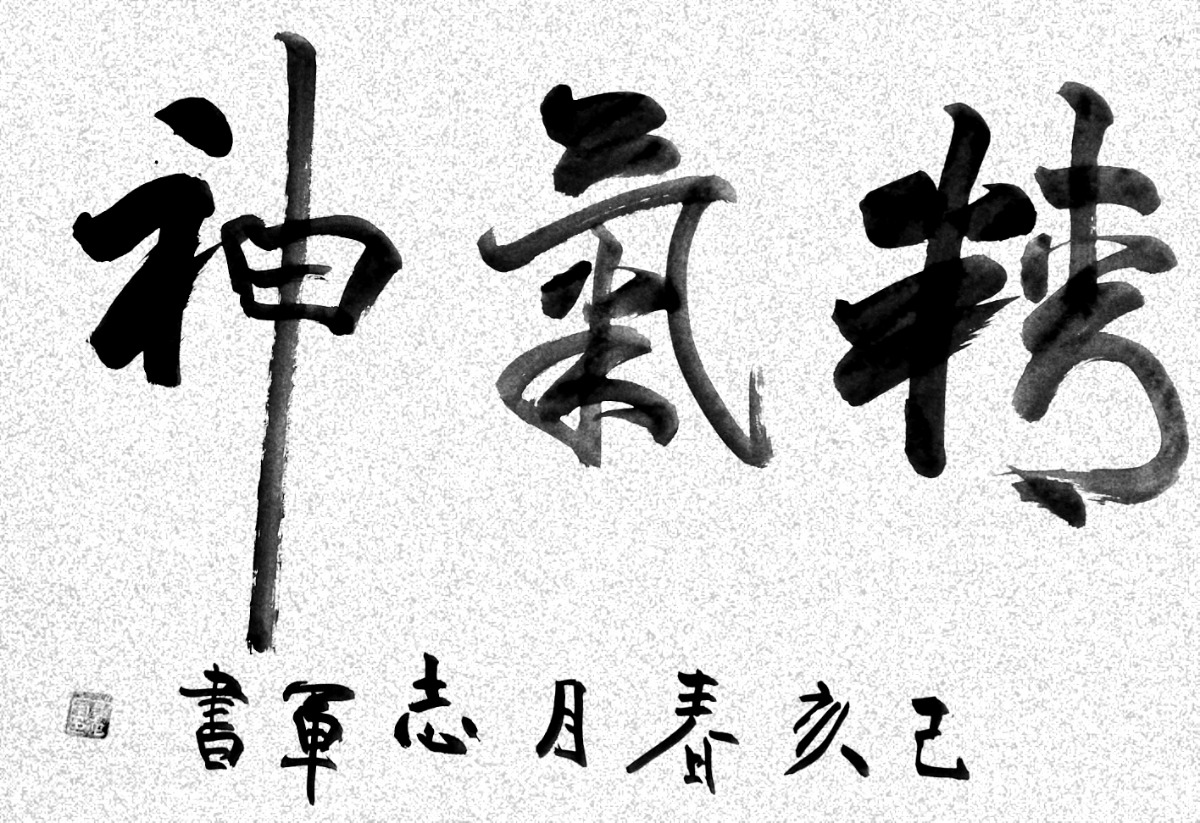 精氣神
己亥春月志軍書